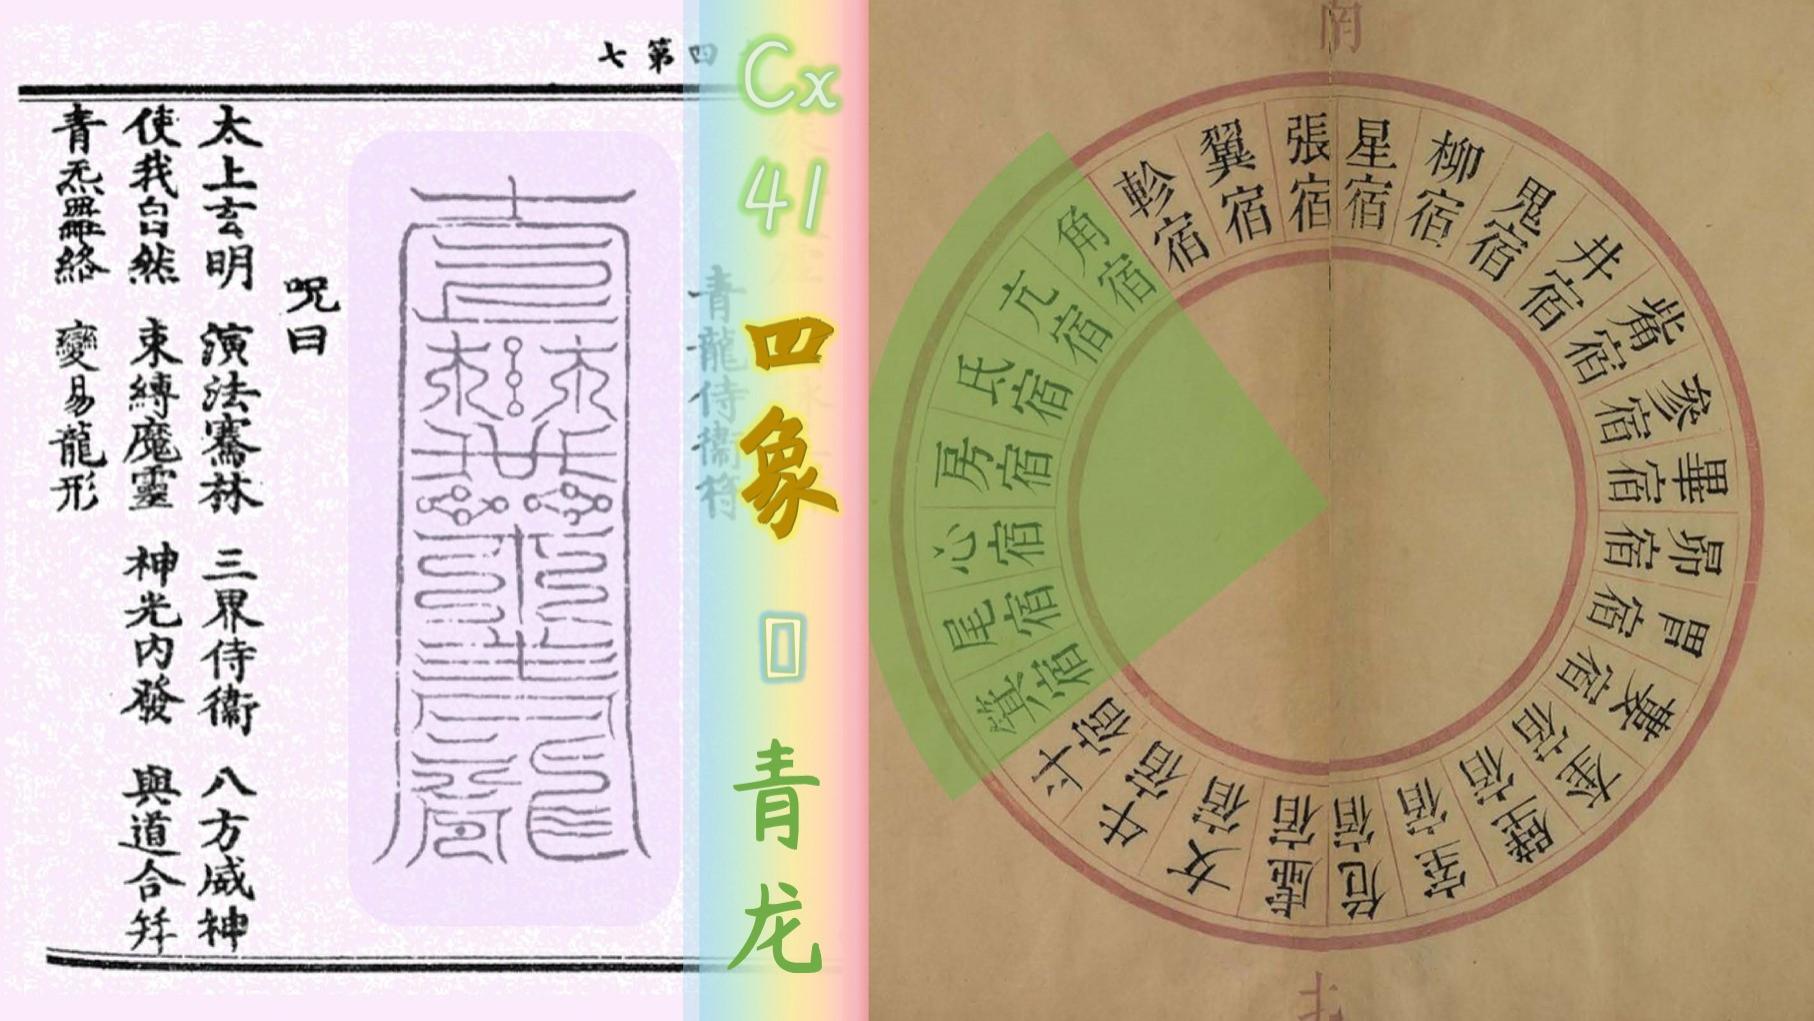 七第四
呪曰
太上玄明 演法騫林 三界侍衛 八方威神
使我自然 束縛魔靈 神光內發 與道合并
青炁羅絡 變易龍形
青龍侍衛符
Cx
41
四象
青龙
南
角宿
亢宿
氐宿
房宿
心宿
尾宿
箕宿
斗宿
牛宿
女宿
虛宿
危宿
室宿
壁宿
奎宿
婁宿
胃宿
昴宿
畢宿
參宿
觜宿
井宿
鬼宿
柳宿
星宿
張宿
翼宿
軫宿
北